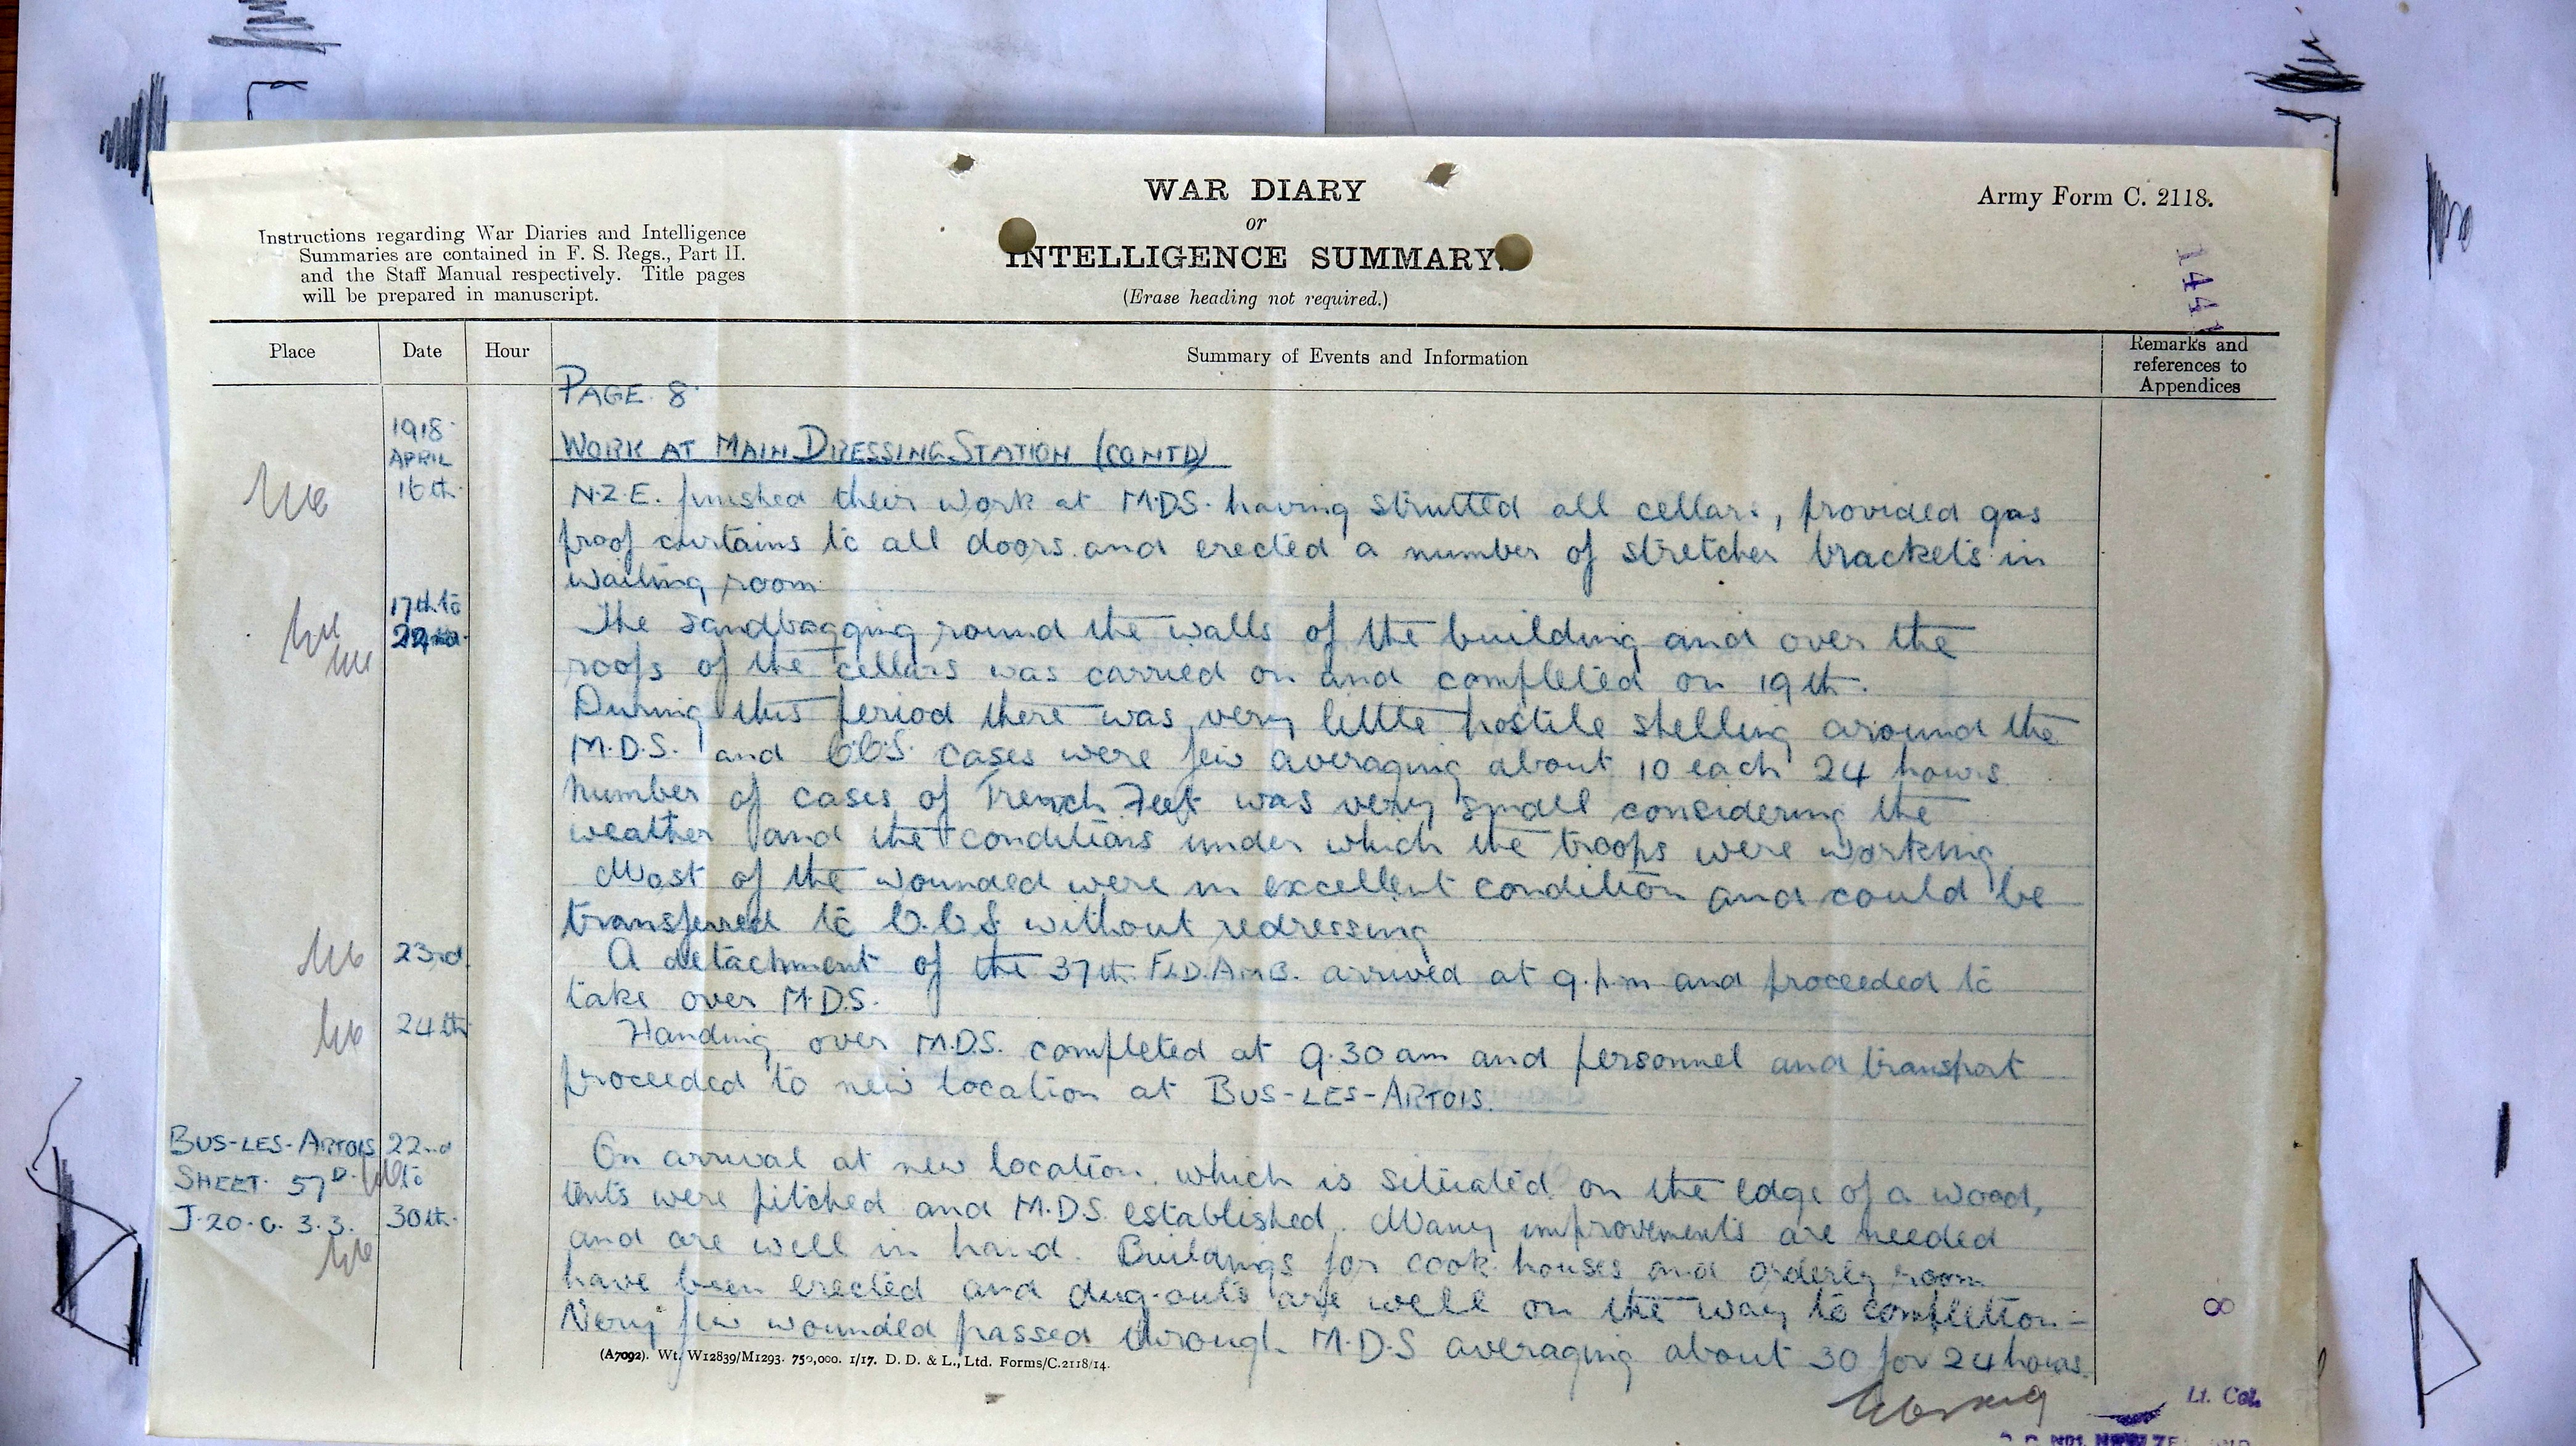 WAR DIARY
or
INTELLIGENCE SUMMARY.
(Erase heading not required.)
Army Form C. 2118.
Instructions regarding War Diaries and Intelligence
Summaries are contained in F. S. Regs., Part II.
and the Staff Manual respectively. Title pages
will be prepared in manuscript.
144
Place Date Hour Summary of Events and Information Remarks and references to Appendices
PAGE. 8.
1918
APRIL
WORK AT MAIN DRESSING STATION (CONTD)
16th. N.Z.E. finished their work at M.D.S. having strutted all cellars, provided gas
proof curtains to all doors and erected a number of stretcher brackets in
waiting room
17th to
22nd. The sandbagging round the walls of the building and over the
roofs of the cellars was carried on and completed on 19th.
During this period there was very little hostile shelling around the
M.D.S. and cases were few averaging about 10 each 24 hours
Number of cases of Trench Feet was very small considering the
weather and the conditions under which the troops were working
Most of the wounded were in excellent condition and could be
transferred to C.C.S without redressing
23rd. A detachment of the 37th FLD. AMB. arrived at 9.p.m and proceeded to
take over M.D.S.
24th Handing over M.D.S. completed at 9.30 am and personnel and transport
proceeded to new location at BUS-LES-ARTOIS.
BUS-LES-ARTOIS 22nd
SHEET. 57D. to
J.20.c.3.3. 30th.
On arrival at new location, which is situated on the edge of a wood,
tents were pitched and M.D.S. established. Many improvements are needed
and are well in hand. Buildings for cook houses and orderly room
have been erected and dug-outs are well on the way to completion -
Very few wounded passed through M.D.S averaging about 30 for 24 hours.
8
(A7092). Wt. W12839/M1293. 750,000. 1/17. D. D. & L., Ltd. Forms/C.2118/14.
Lt. Col.